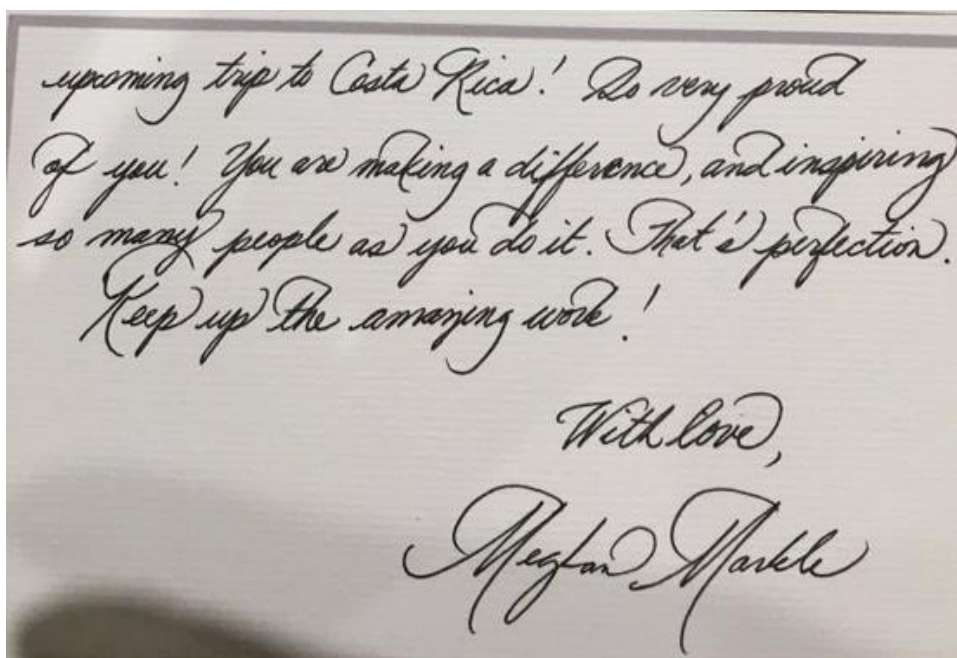 upcoming trip to Costa Rica! So very proud
of you! You are making a difference, and inspiring
so many people as you do it. That's perfection.
Keep up the amazing work!
With love,
Meghan Markle